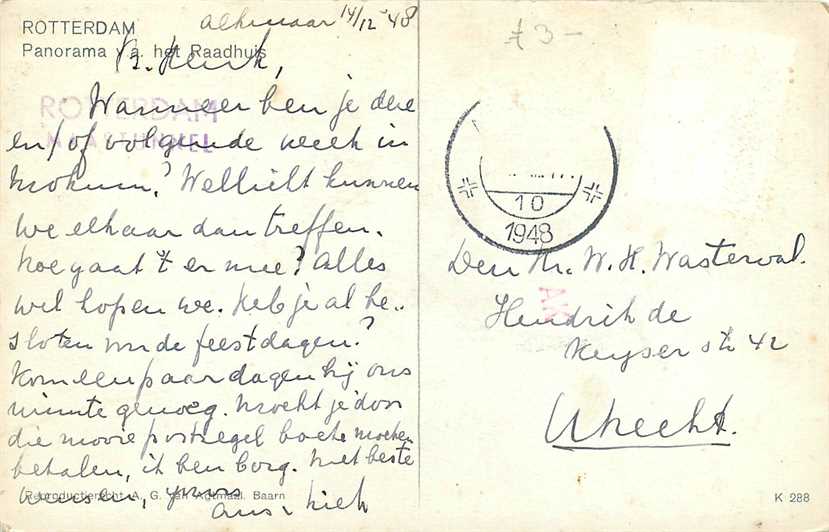 ROTTERDAM
Panorama v.a. het Raadhuis
Alkmaar 14/12 '48
ROTTERDAM
MAASTUNNEL
B. Henk,
Wanneer ben je deze
en/of volgende week in
Mokum? Wellicht kunnen
we elkaar dan treffen.
Hoe gaat 't er mee? Alles
wel hopen we. Heb je al be-
sloten m de feestdagen?
Kom een paar dagen bij ons
ruimte genoeg. Mocht je door
die mooie postzegel boete moeten
betalen, ik ben borg. Met beste
wensen, yours
Ans & Kick
Reproductierecht A. G. van Agtmaal. Baarn
43-
10
1948
Den Hr. W. H. Wasterval.
AK
Hendrik de
Keyserstr 42
Utrecht.
K 288